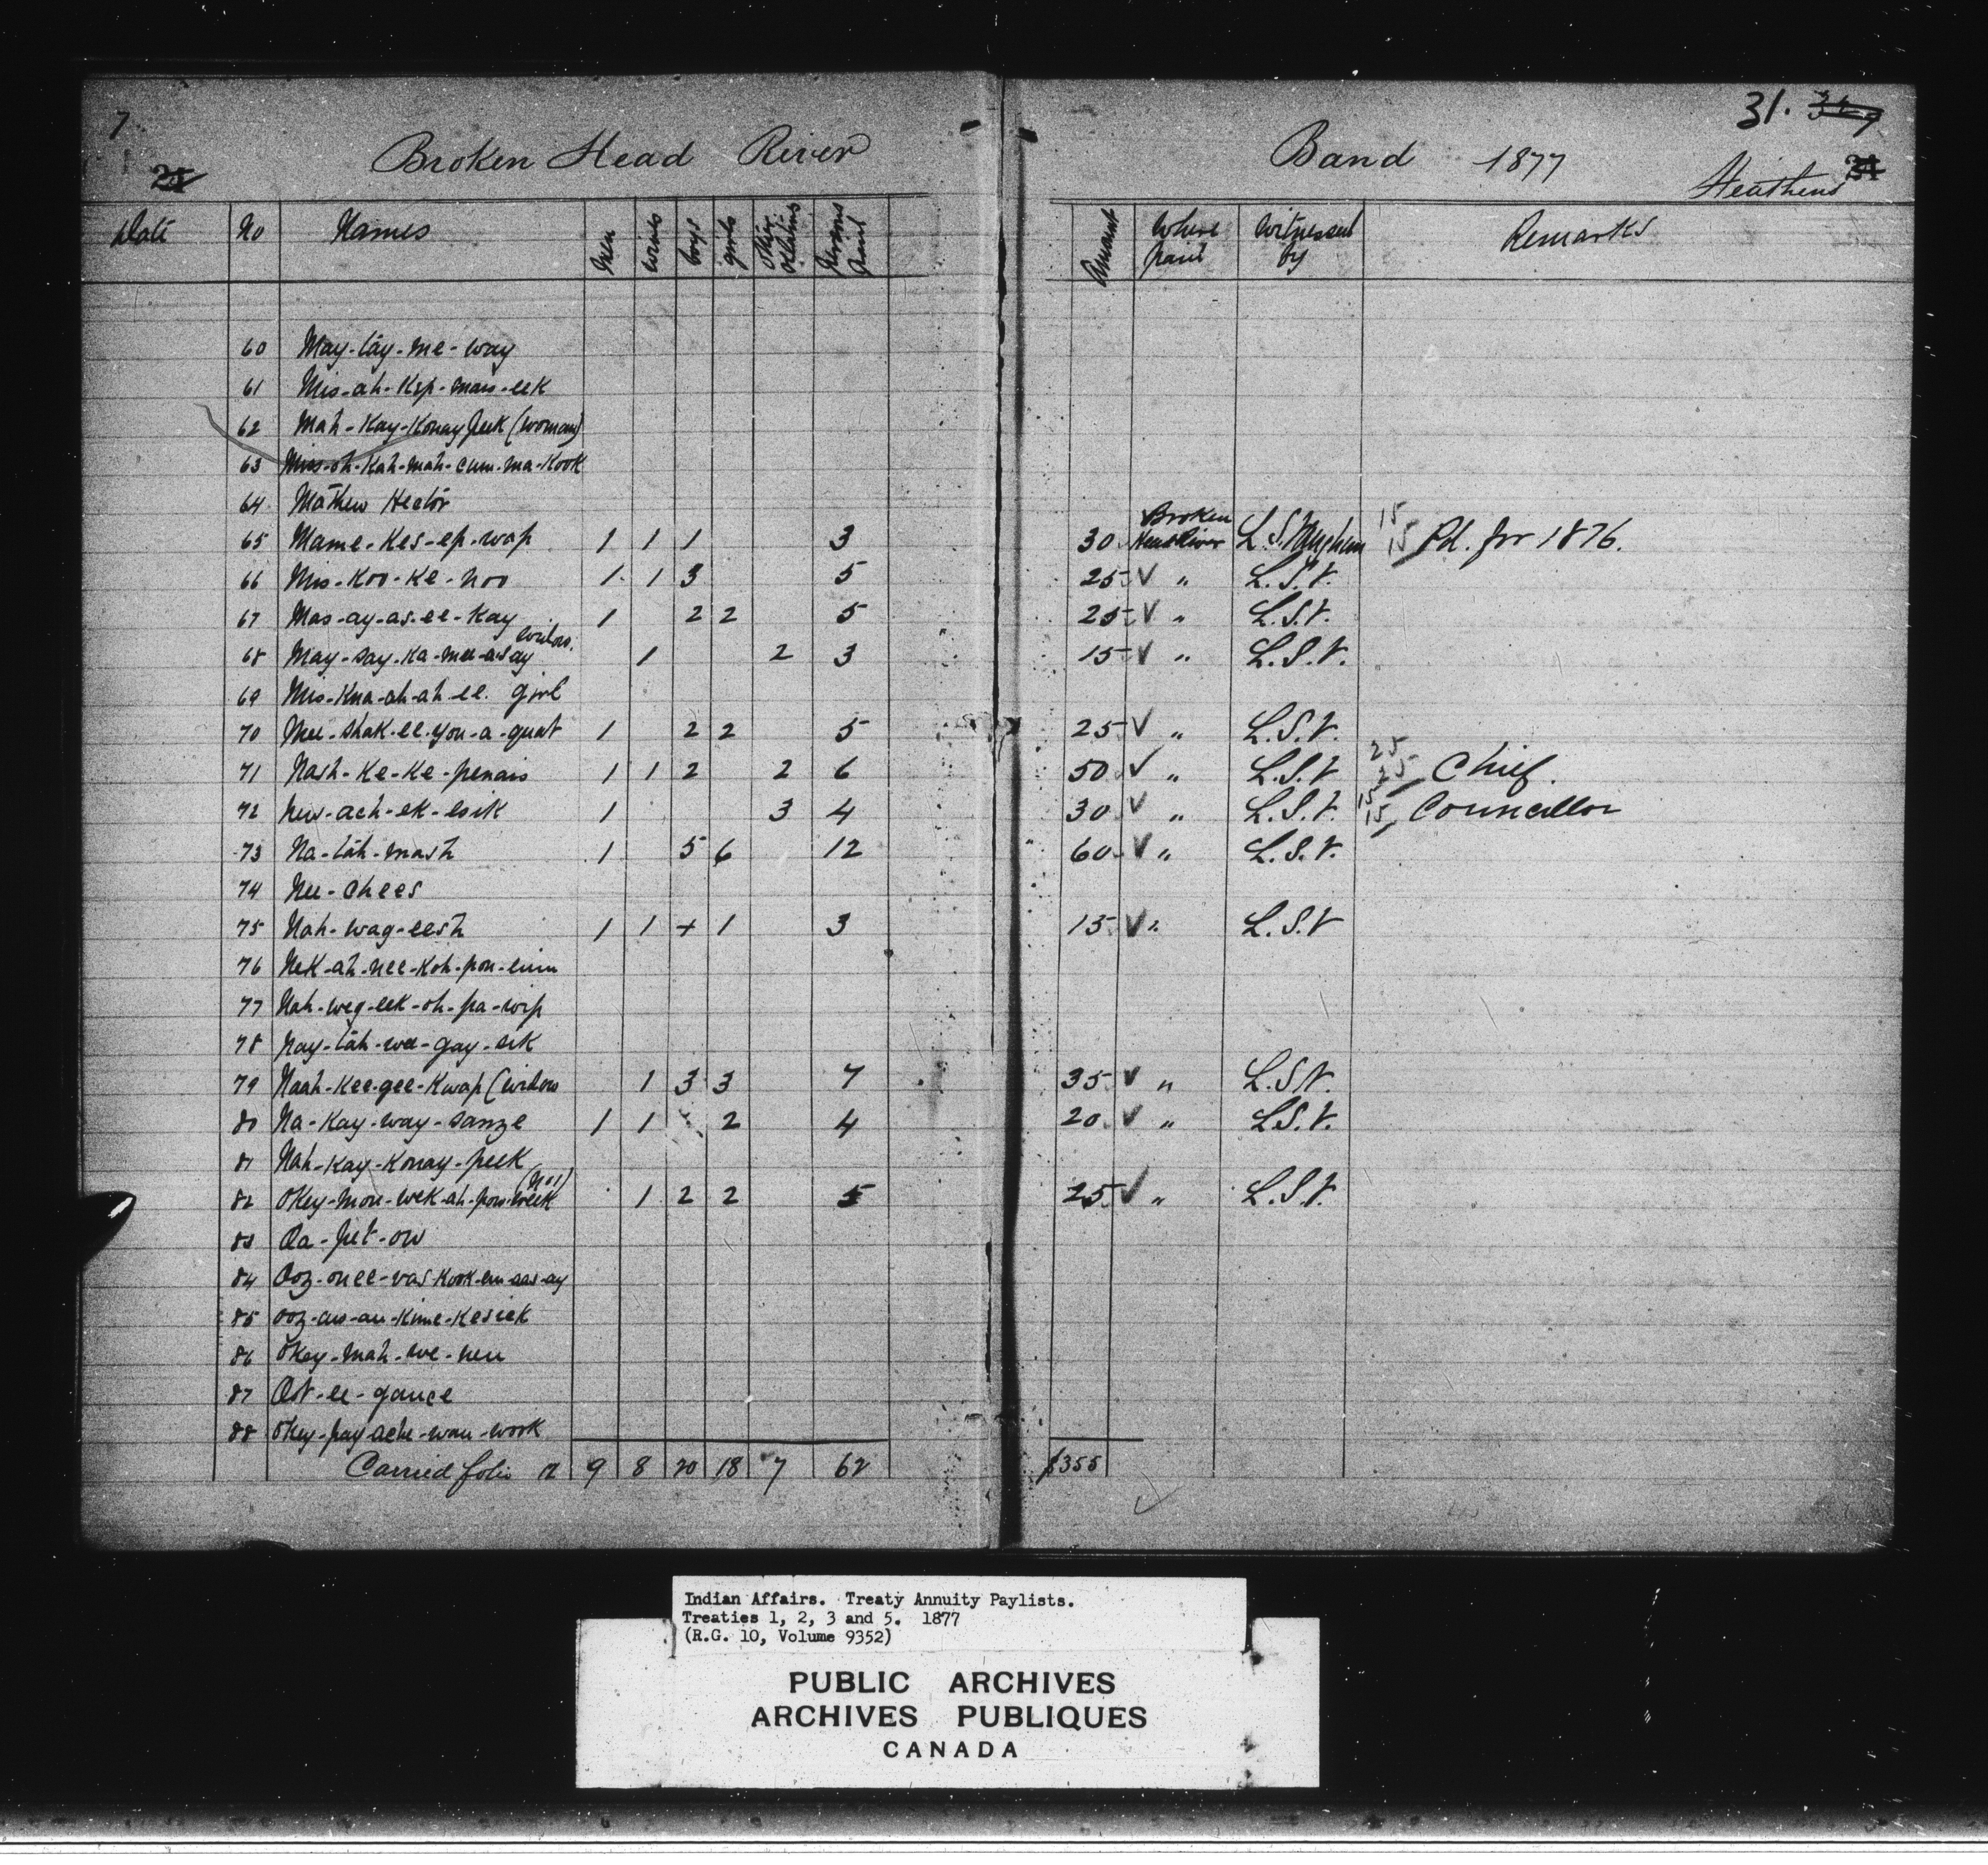 7
25
Broken Head River Band 1877
31.
Heathens
Date No Names Men wives boys girls Other Relatives Persons Paid Amount Where paid Witnessed by Remarks
60 May-tay-me-way
61 Mis-ah-Kep-mais-eek
62 Mah-Kay-Konay peek (woman)
63 Miss-oh-Kah-mah-cum-ma-Kook
64 Mathew Hector
65 Mame-Kes-ep-wap 1 1 1 3 30 Broken Head River L. S. 15 15 Pd. for 1876.
66 Mis-Koo-Ke-noo 1 1 3 5 25 V " L.S.V.
67 Mas-ay-as-ee-Kay 1 2 2 5 25 V " L.S.V.
68 May-say-Ka-mee-asay widow. 1 2 3 15 V " L.S.V.
69 Mis-Kna-ah-ah-ee. girl
70 Mee-shak-ee-you-a-quat 1 2 2 5 25 V " L.S.V.
71 Nash-Ke-Ke-penais 1 1 2 2 6 50 V " L.S.V 25 25 Chief.
72 New-ach-ek-esik 1 3 4 30 V " L.S.V. 15 15 Councillor
73 Na-tah-mash 1 5 6 12 60 V " L.S.V.
74 Nee-chees
75 Nah-wag-eesh 1 1 + 1 3 15 V " L.S.V
76 Nek-ah-nee-Koh-pon-einm
77 Nah-weg-eek-oh-pa-wip
78 Nay-tah-wee-gay-sik
79 Naah-Kee-gee-Kwap (widow 1 3 3 7 35 V " L.S.V.
80 Na-Kay-way-sanze 1 1 2 4 20 V " L.S.V.
81 Nah-Kay-Konay-peek
82 Okey-mou-wek-ah-pow-week (No 1) 1 2 2 5 25 V " L.S.V.
83 Oa-pet-ow
84 Ooz-onee-vas-Kook-em-aas-ay
85 Ooz-aw-au-Kime-Kesick
86 Okey-mah-we-neu
87 Oot-ee-gance
88 Okey-pay-ache-wan-wook
Carried folio 12 9 8 20 18 7 62 $355
Indian Affairs. Treaty Annuity Paylists.
Treaties 1, 2, 3 and 5. 1877
(R.G. 10, Volume 9352)
PUBLIC ARCHIVES
ARCHIVES PUBLIQUES
CANADA